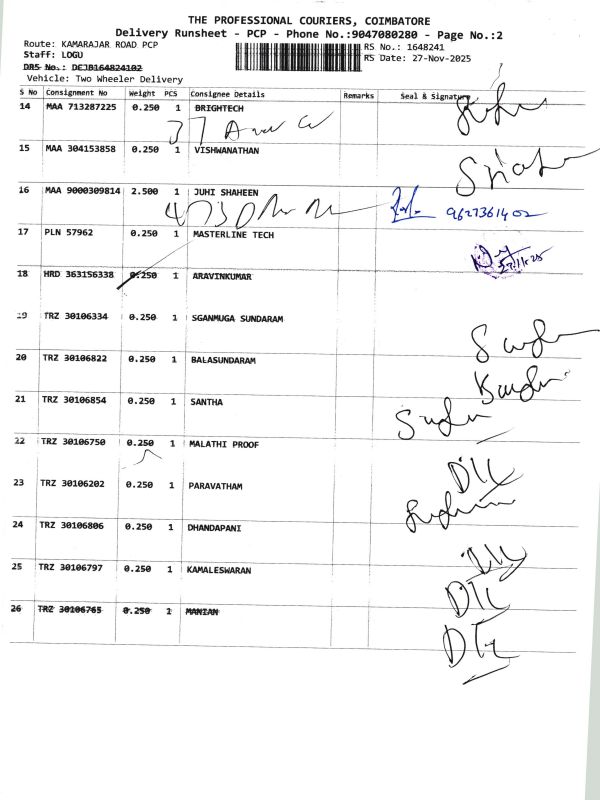 THE PROFESSIONAL COURIERS, COIMBATORE
Delivery Runsheet - PCP - Phone No.:9047080280 - Page No.:2
Route: KAMARAJAR ROAD PCP
RS No.: 1648241
Staff: LOGU
RS Date: 27-Nov-2025
DRS No.: DEJB164824102
Vehicle: Two Wheeler Delivery
S No Consignment No Weight PCS Consignee Details Remarks Seal & Signature
14 MAA 713287225 0.250 1 BRIGHTECH
15 MAA 304153858 0.250 1 VISHWANATHAN
16 MAA 9000309814 2.500 1 JUHI SHAHEEN
9627361402
17 PLN 57962 0.250 1 MASTERLINE TECH
27/11/25
18 HRD 363156338 0.250 1 ARAVINKUMAR
19 TRZ 30106334 0.250 1 SGANMUGA SUNDARAM
20 TRZ 30106822 0.250 1 BALASUNDARAM
21 TRZ 30106854 0.250 1 SANTHA
22 TRZ 30106750 0.250 1 MALATHI PROOF
23 TRZ 30106202 0.250 1 PARAVATHAM
24 TRZ 30106806 0.250 1 DHANDAPANI
25 TRZ 30106797 0.250 1 KAMALESWARAN
26 TRZ 30106765 0.250 1 MANIAN